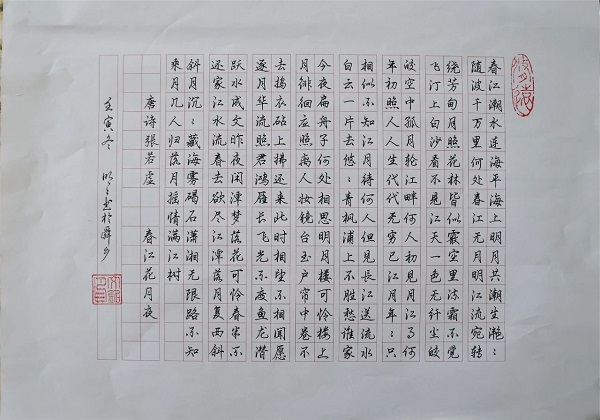 春江潮水连海平海上明月共潮生滟:
随波千万里何处春江无月明江流宛转
绕芳甸月照花林皆似霰空里流霜不觉
飞汀上白沙看不见江天一色无纤尘皎
皎空中孤月轮江畔何人初见月江月何
年初照人人生代代无穷已江月年:只
相似不知江月待何人但见長江送流水
白云一片去悠:青枫浦上不胜愁谁家
今夜扁舟子何处相思明月楼可怜楼上
月徘徊应照离人妆镜台玉户帘中卷不
去捣衣砧上拂还来此时相望不相闻愿
逐月华流照君鸿雁长飞光不度鱼龙潜
跃水成文昨夜闲潭梦落花可怜春半不
还家江水流春去欲尽江潭落月复西斜
斜月沉:藏海雾碣石潇湘无限路不知
乘月几人归落月摇情满江树
唐诗張若虚 春江花月夜
壬寅冬 书於舜乡